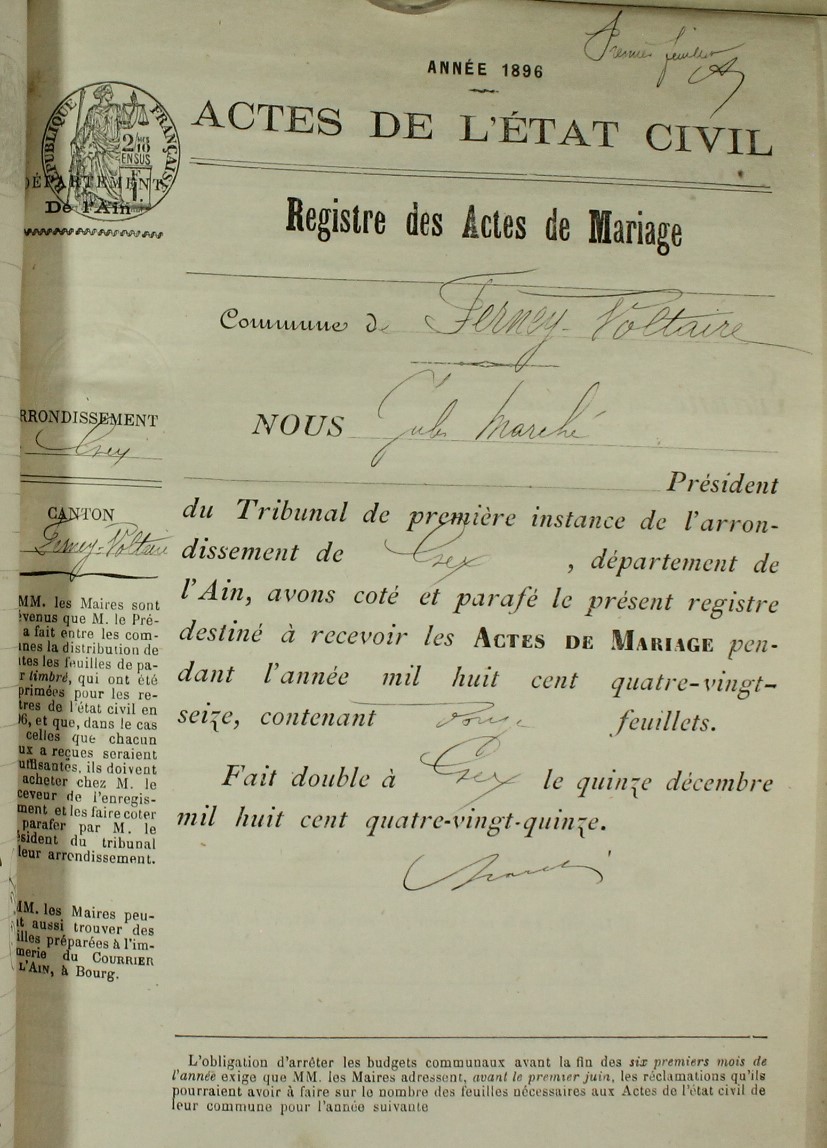 Premier feuillet
ANNÉE 1896
ACTES DE L'ÉTAT CIVIL
RÉPUBLIQUE FRANÇAISE
2/10
EN SUS
DÉPARTEMENT
De l'Ain
Registre des Actes de Mariage
Commune de Ferney-Voltaire
NOUS Jules Marché
Président
du Tribunal de première instance de l'arron-
dissement de Gex, département de
l'Ain, avons coté et parafé le présent registre
destiné à recevoir les ACTES DE MARIAGE pen-
dant l'année mil huit cent quatre-vingt-
seize, contenant feuillets.
Fait double à Gex le quinze décembre
mil huit cent quatre-vingt-quinze.
RRONDISSEMENT
Gex
CANTON
Ferney-Voltaire
MM. les Maires sont
évenus que M. le Pré-
a fait entre les com-
nes la distribution de
tes les feuilles de pa-
r timbré, qui ont été
primées pour les re-
tres de l'état civil en
96, et que, dans le cas
celles que chacun
ux a reçues seraient
uffisantes, ils doivent
acheter chez M. le
ceveur de l'enregis-
ment et les faire coter
parafer par M. le
ésident du tribunal
leur arrondissement.
MM. les Maires peu-
t aussi trouver des
illes préparées à l'im-
merie du COURRIER
L'AIN, à Bourg.
L'obligation d'arrêter les budgets communaux avant la fin des six premiers mois de
l'année exige que MM. les Maires adressent, avant le premier juin, les réclamations qu'ils
pourraient avoir à faire sur le nombre des feuilles nécessaires aux Actes de l'état civil de
leur commune pour l'année suivante